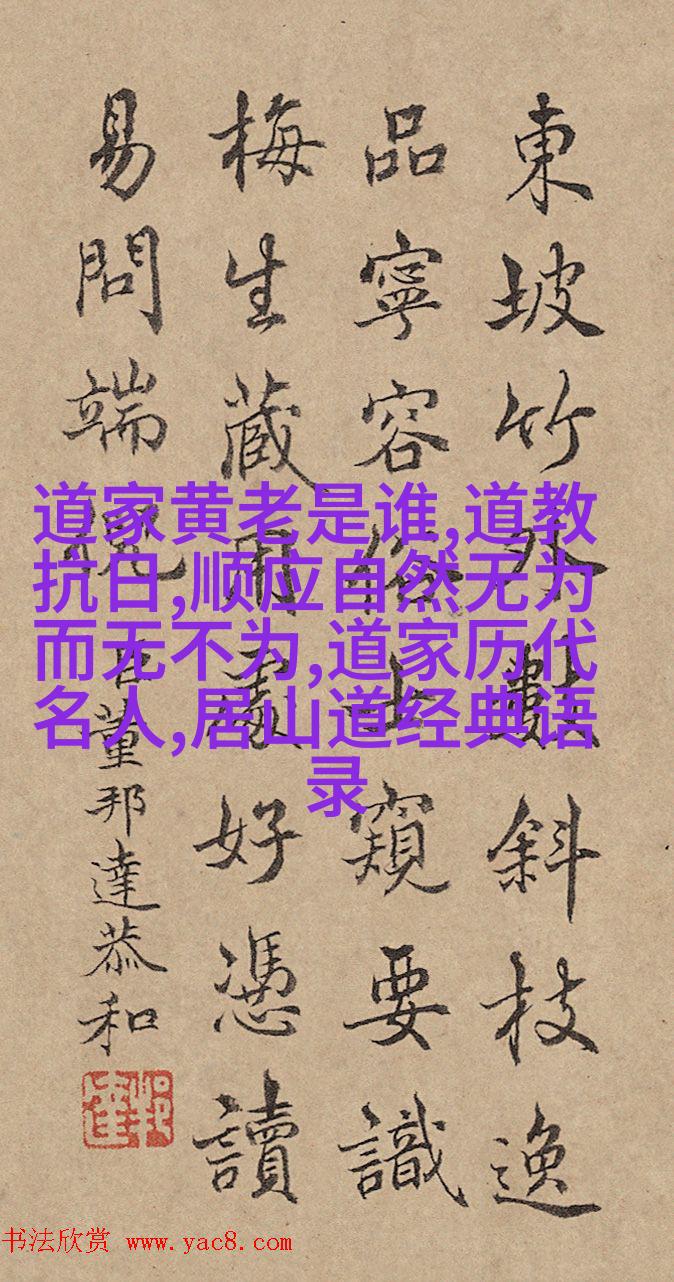 東坡竹外數斜枝逸
品寧容俗士窺要識
梅生藏用處好憑讀
易問端倪
臣董邦達恭和
道家黄老是谁,道教
抗日,顺应自然无为
而无不为,道家历代
名人,居山道经典语
录
书法欣赏 www.yac8.com